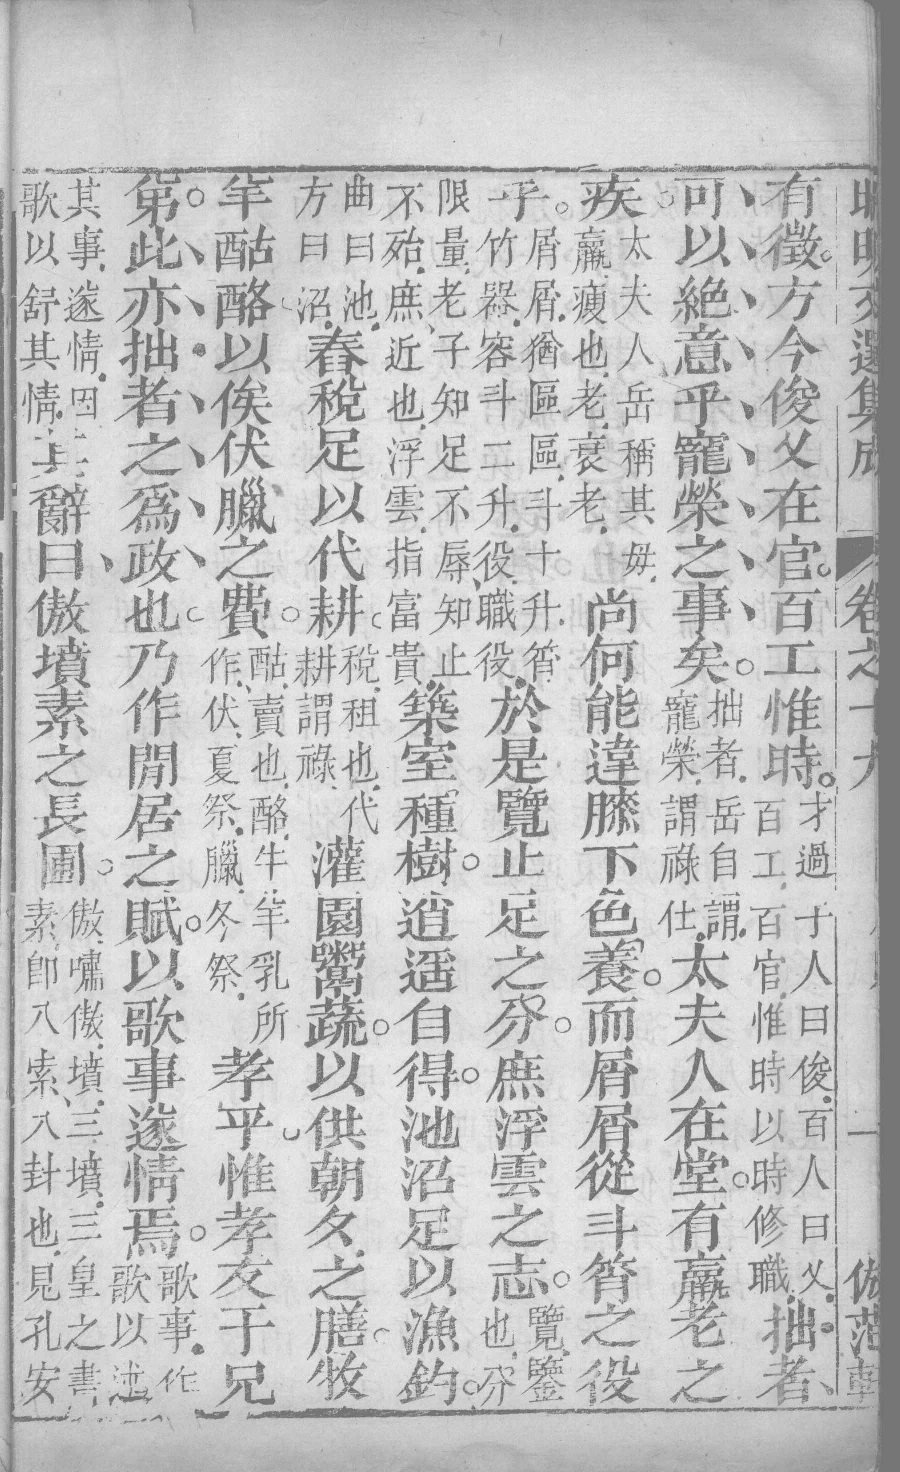 昭明文選集成 卷之十九 一 倣范軒
有徵方今俊乂在官百工惟時
才過于人曰俊百人曰乂
百工百官惟時以時修職
拙者
可以絶意乎寵榮之事矣
拙者岳自謂
寵榮謂祿仕
太夫人在堂有羸老之
疾
太夫人岳稱其母
羸瘦也老衰老
尚何能違膝下色養而屑屑從斗筲之役
乎
屑屑猶區區斗十升筲
竹器容斗二升役職役
於是覽止足之分庶浮雲之志
覽鑒
也分
限量老子知足不辱知止
不殆庶近也浮雲指富貴
築室種樹逍遙自得池沼足以漁釣
曲曰池
方曰沼
舂稅足以代耕
稅租也代
耕謂祿
灌園鬻蔬以供朝夕之膳牧
羊酤酪以俟伏臘之費
酤賣也酪牛羊乳所
作伏夏祭臘冬祭
孝乎惟孝友于兄
弟此亦拙者之爲政也乃作閒居之賦以歌事遂情焉
歌事作
歌以述
其事遂情因
歌以舒其情
其辭曰傲墳素之長圃
傲嘯傲墳三墳三皇之書
素卽八索八封也見孔安